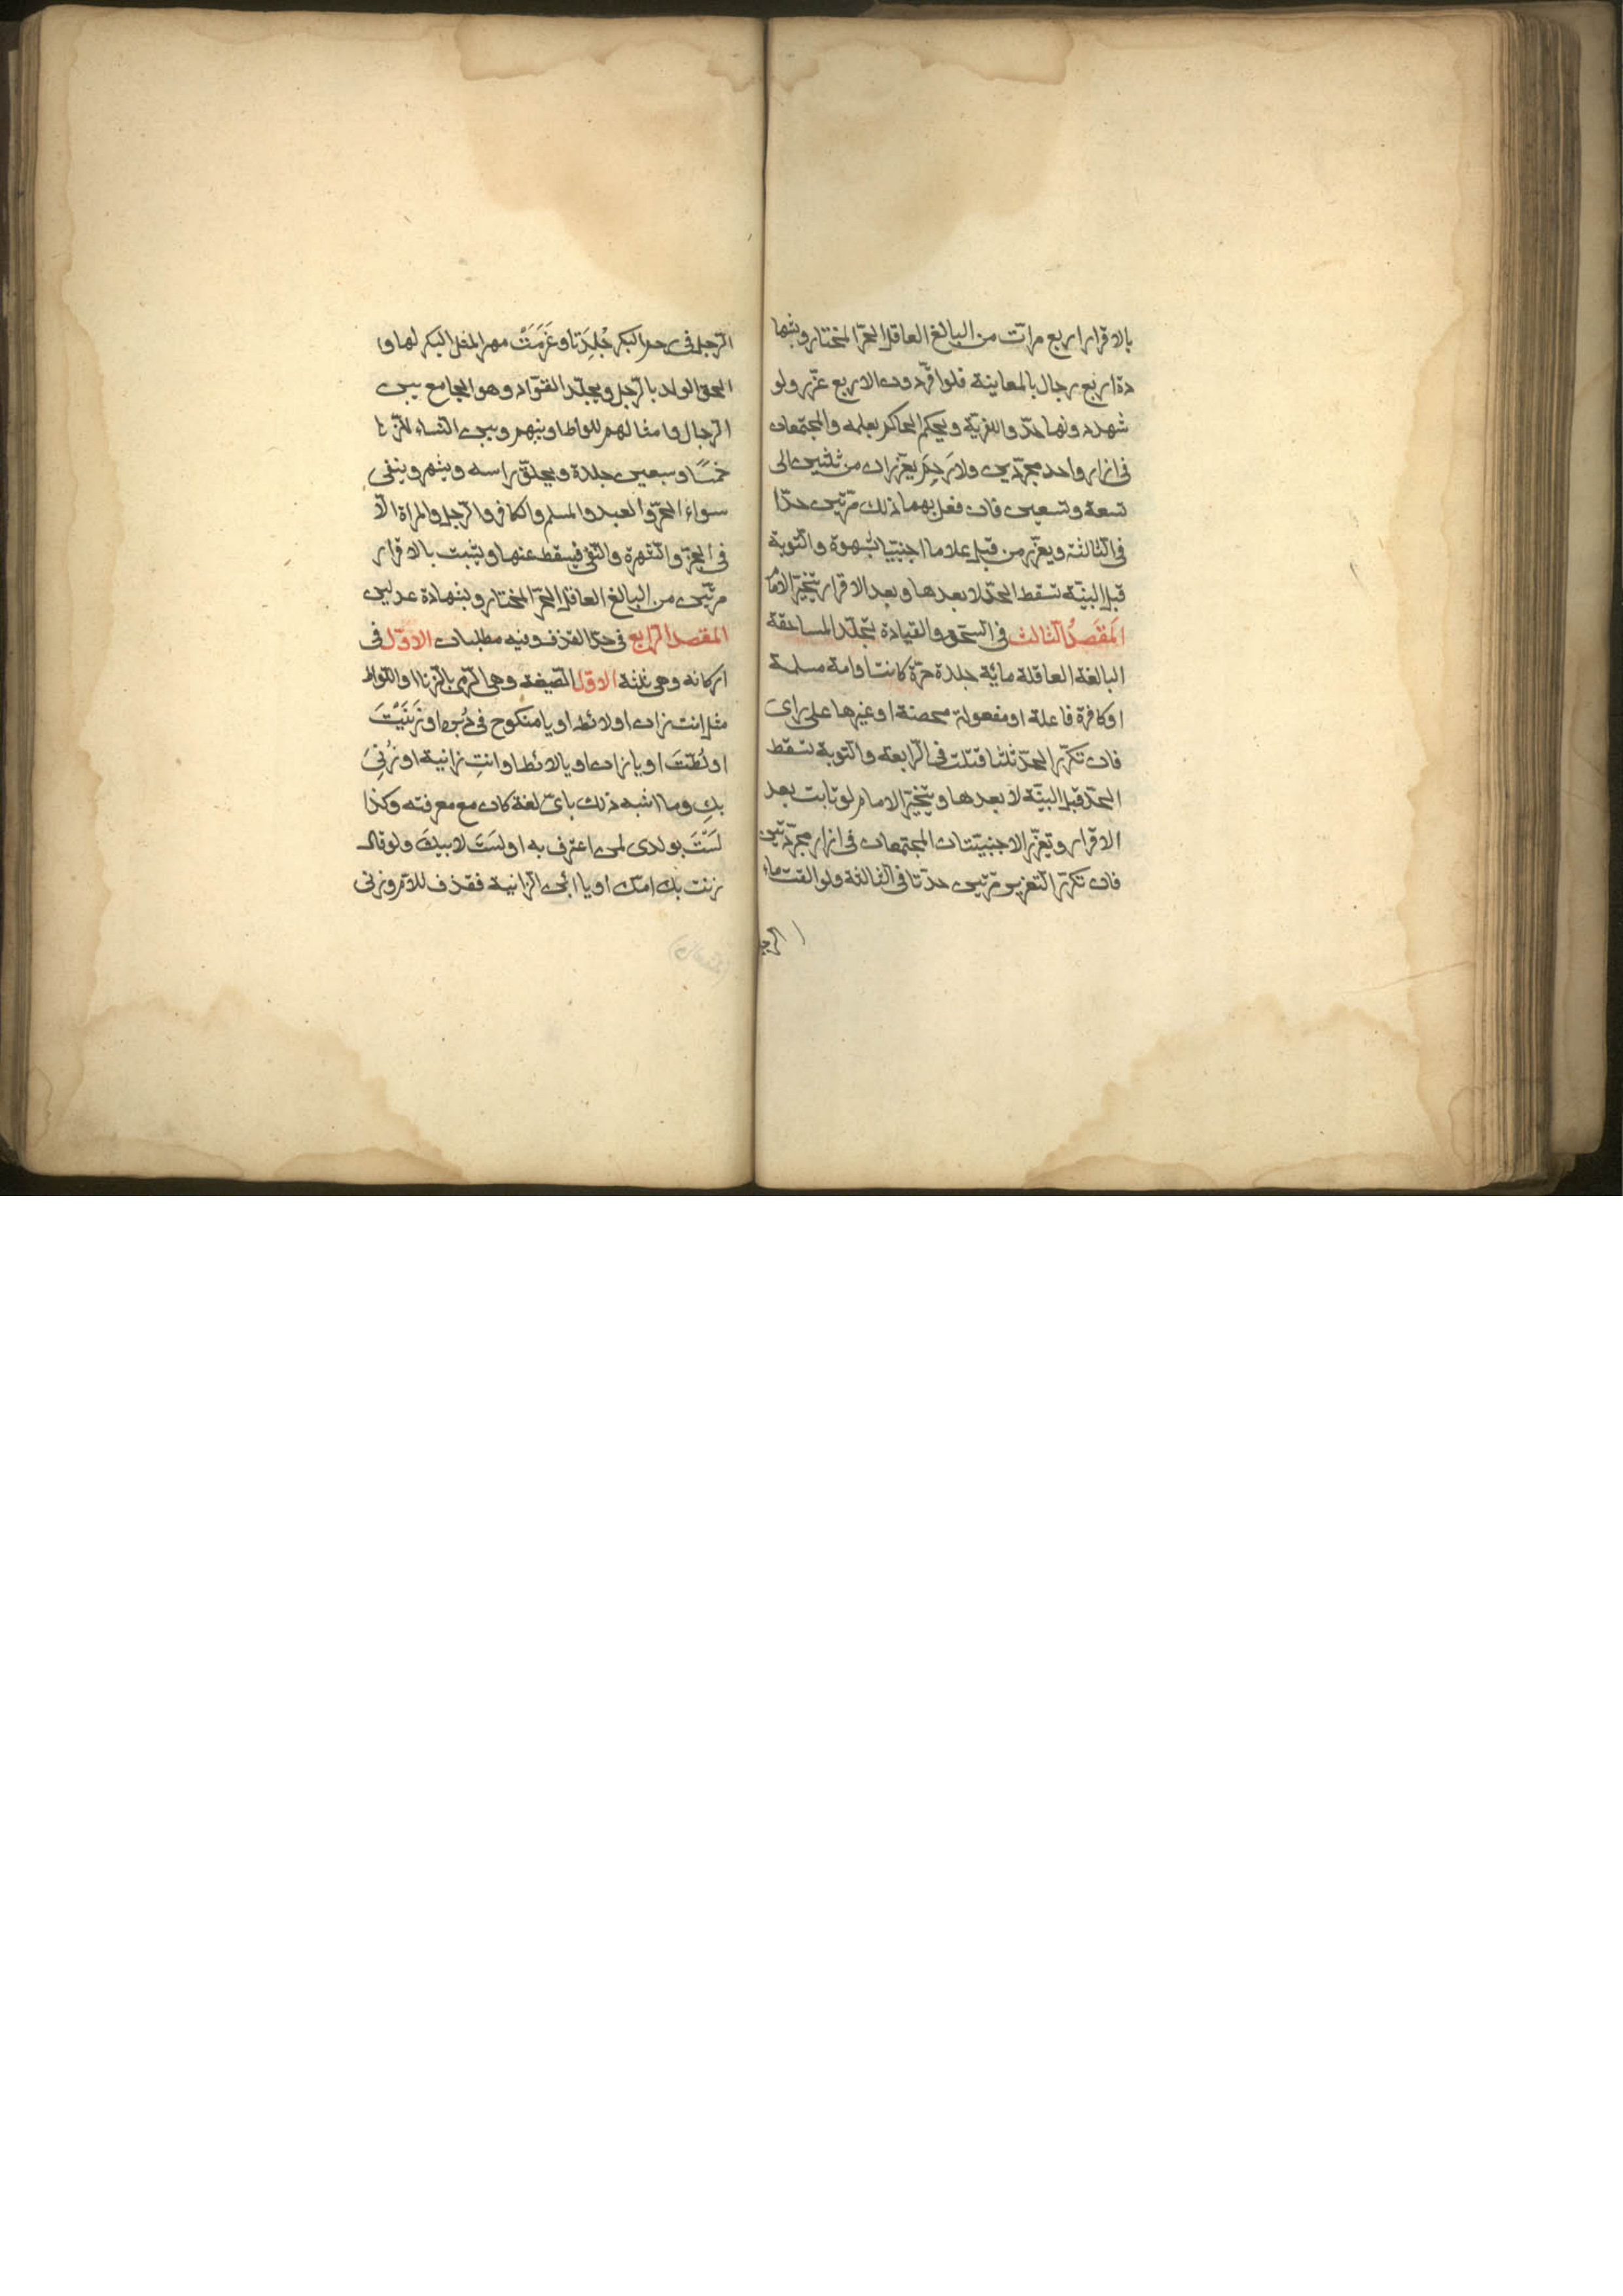 بالاقرار اربع مرات من البالغ العاقل الحرّ المختار وبشها
دة اربع رجال بالمعاينة فلو اقرّ دون الاربع عزّر ولو
شهد دونها حدّوا للفرية ويحكم الحاكم بعلمه والمجتمعان
فى ازار واحد مجرّدين ولا رَحِمَ يعزّران من ثلثين الى
تسعة وتسعين فان فعل بهما ذلك مرّتين حدّا
فى الثالثة ويعزّر من قبل غلاما اجنبيّا بشهوة والتوبة
قبل البيّنة تسقط الحدّ لا بعدها وبعد الاقرار يتخيّر الامام
المَقصَدُ الثالث فى السّحق والقيادة تجلّد المساحقة
البالغة العاقلة مائة جلدة حرّة كانت او امة مسلمة
او كافرة فاعلة او مفعولة محصنة او غيرها على راى
فان تكرّر الحدّ ثلثا قتلت فى الرّابعة والتوبة تسقط
الحدّ قبل البيّنة لا بعدها ويتخيّر الامام لو تابت بعد
الاقرار وتعزّر الاجنبيّتان المجتمعان فى ازار مجرّدتين
فان تكرّر التعزير مرّتين حدّتا فى الثالثة ولو القت ماء
الرجل
الرّجل فى رحم البكر جُلِدَتا وغَرَمَتْ مهر المثل البكر لها و
الحق الولد بالرّجل ويجلّد القوّاد وهو الجامع بين
الرّجال وامثالهم للواط او بينهم وبين النّساء للزّنا
خمسًا وسبعين جلدة ويحلق راسه ويشهر وينفى
سواء الحرّ والعبد والمسلم والكافر والرّجل والمراة الّا
فى الجزّ والشهرة والنّفى فيسقط عنها ويثبت بالاقرار
مرّتين من البالغ العاقل الحرّ المختار وبشهادة عدلين
المقصد الرّابع فى حدّ القذف وفيه مطلبان الاوّل فى
اركانه وهى ثلثة الاوّل الصّيغة وهى الرّمى بالزّنا او اللّواط
مثل انت زان او لائط او يا منكوح فى دُبره او زَنَيْتَ
او لُطْتَ او يا زان او يا لائط او انتِ زانية او زُنِىَ
بكِ وما اشبه ذلك باىّ لغة كان مع معرفته وكذا
لَسْتَ بولدى لمن اعترف به او لَسْتَ لابيكَ ولو قال
زنت بك امّك او يا ابن الزّانية فقذف للامّ وزنى